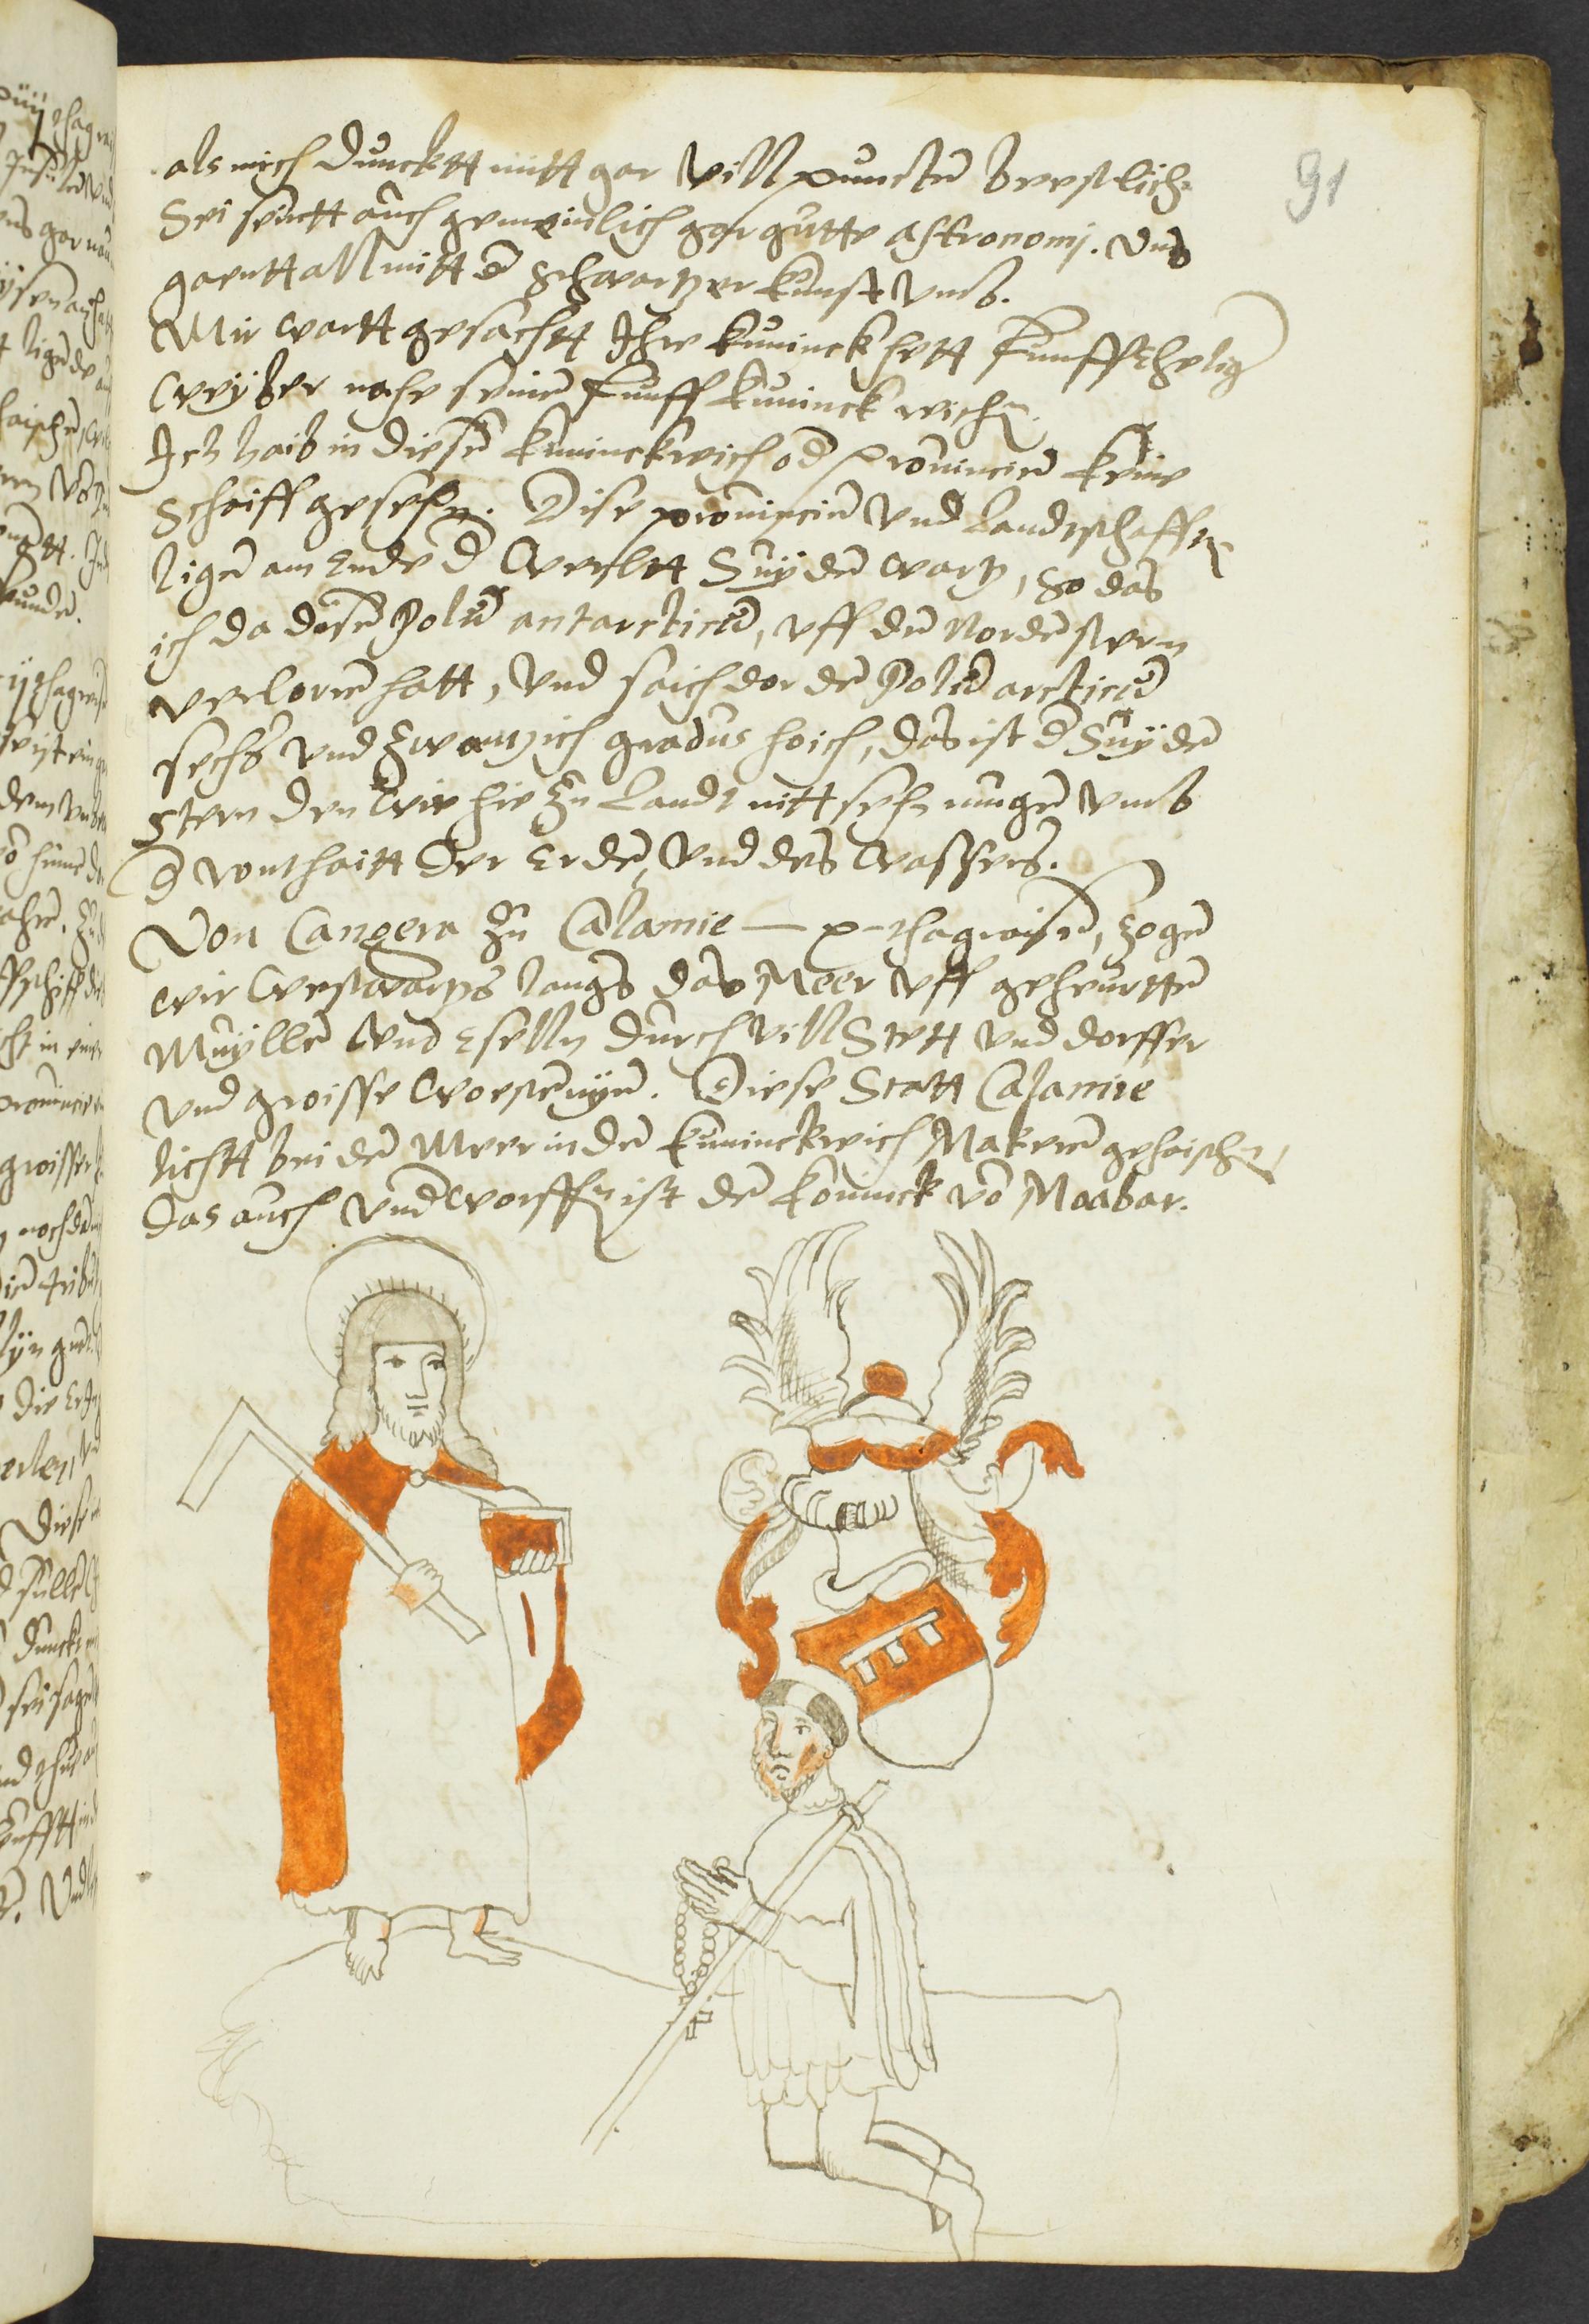 91
als mich duncktt mitt gar vill puncten beestlich.
Sei seintt auch gemeinlich gar gutte astronomj. Und
gaentt all mitt d̄ schwartzer kunst vmb.
Mir wartt gesachtt Ihr kuninck hett funffthelig
weyber nahe seinē funff kuninckrichē.
Ich haib in diesē kuninckreich od̄ prouincien keine
schaiff gesehn. Dise prouincien vnd Landtschafften
ligen am Ende d̄ Werltt Suydē wartz, so das
ich da disē Polū antarcticū, vff dē Nordē stern
verloren hatt, vnd saich dar dē Polū arcticū
sechs vnd zwantzich gradus hoich, das ist d̄ Suydē
stern den wir hie zu Landt nitt sehn mugen vmb
d̄ rontthaitt der Erdē, vnd des Wassers.
Von Cangera zu Calamie — x- thagraisē, zogē
wir Westwartzs langs das Meer vff geheurttē
Muyllē vnd Eselln durch vill Stett vnd dorffer
vnd groisse Woestenyē. Diese Statt Calamie
lichtt bei dē Meer in dē kuninckreich Makeren gehaischē,
das auch vnd̄worffē ist dē koninck vō Maabar.